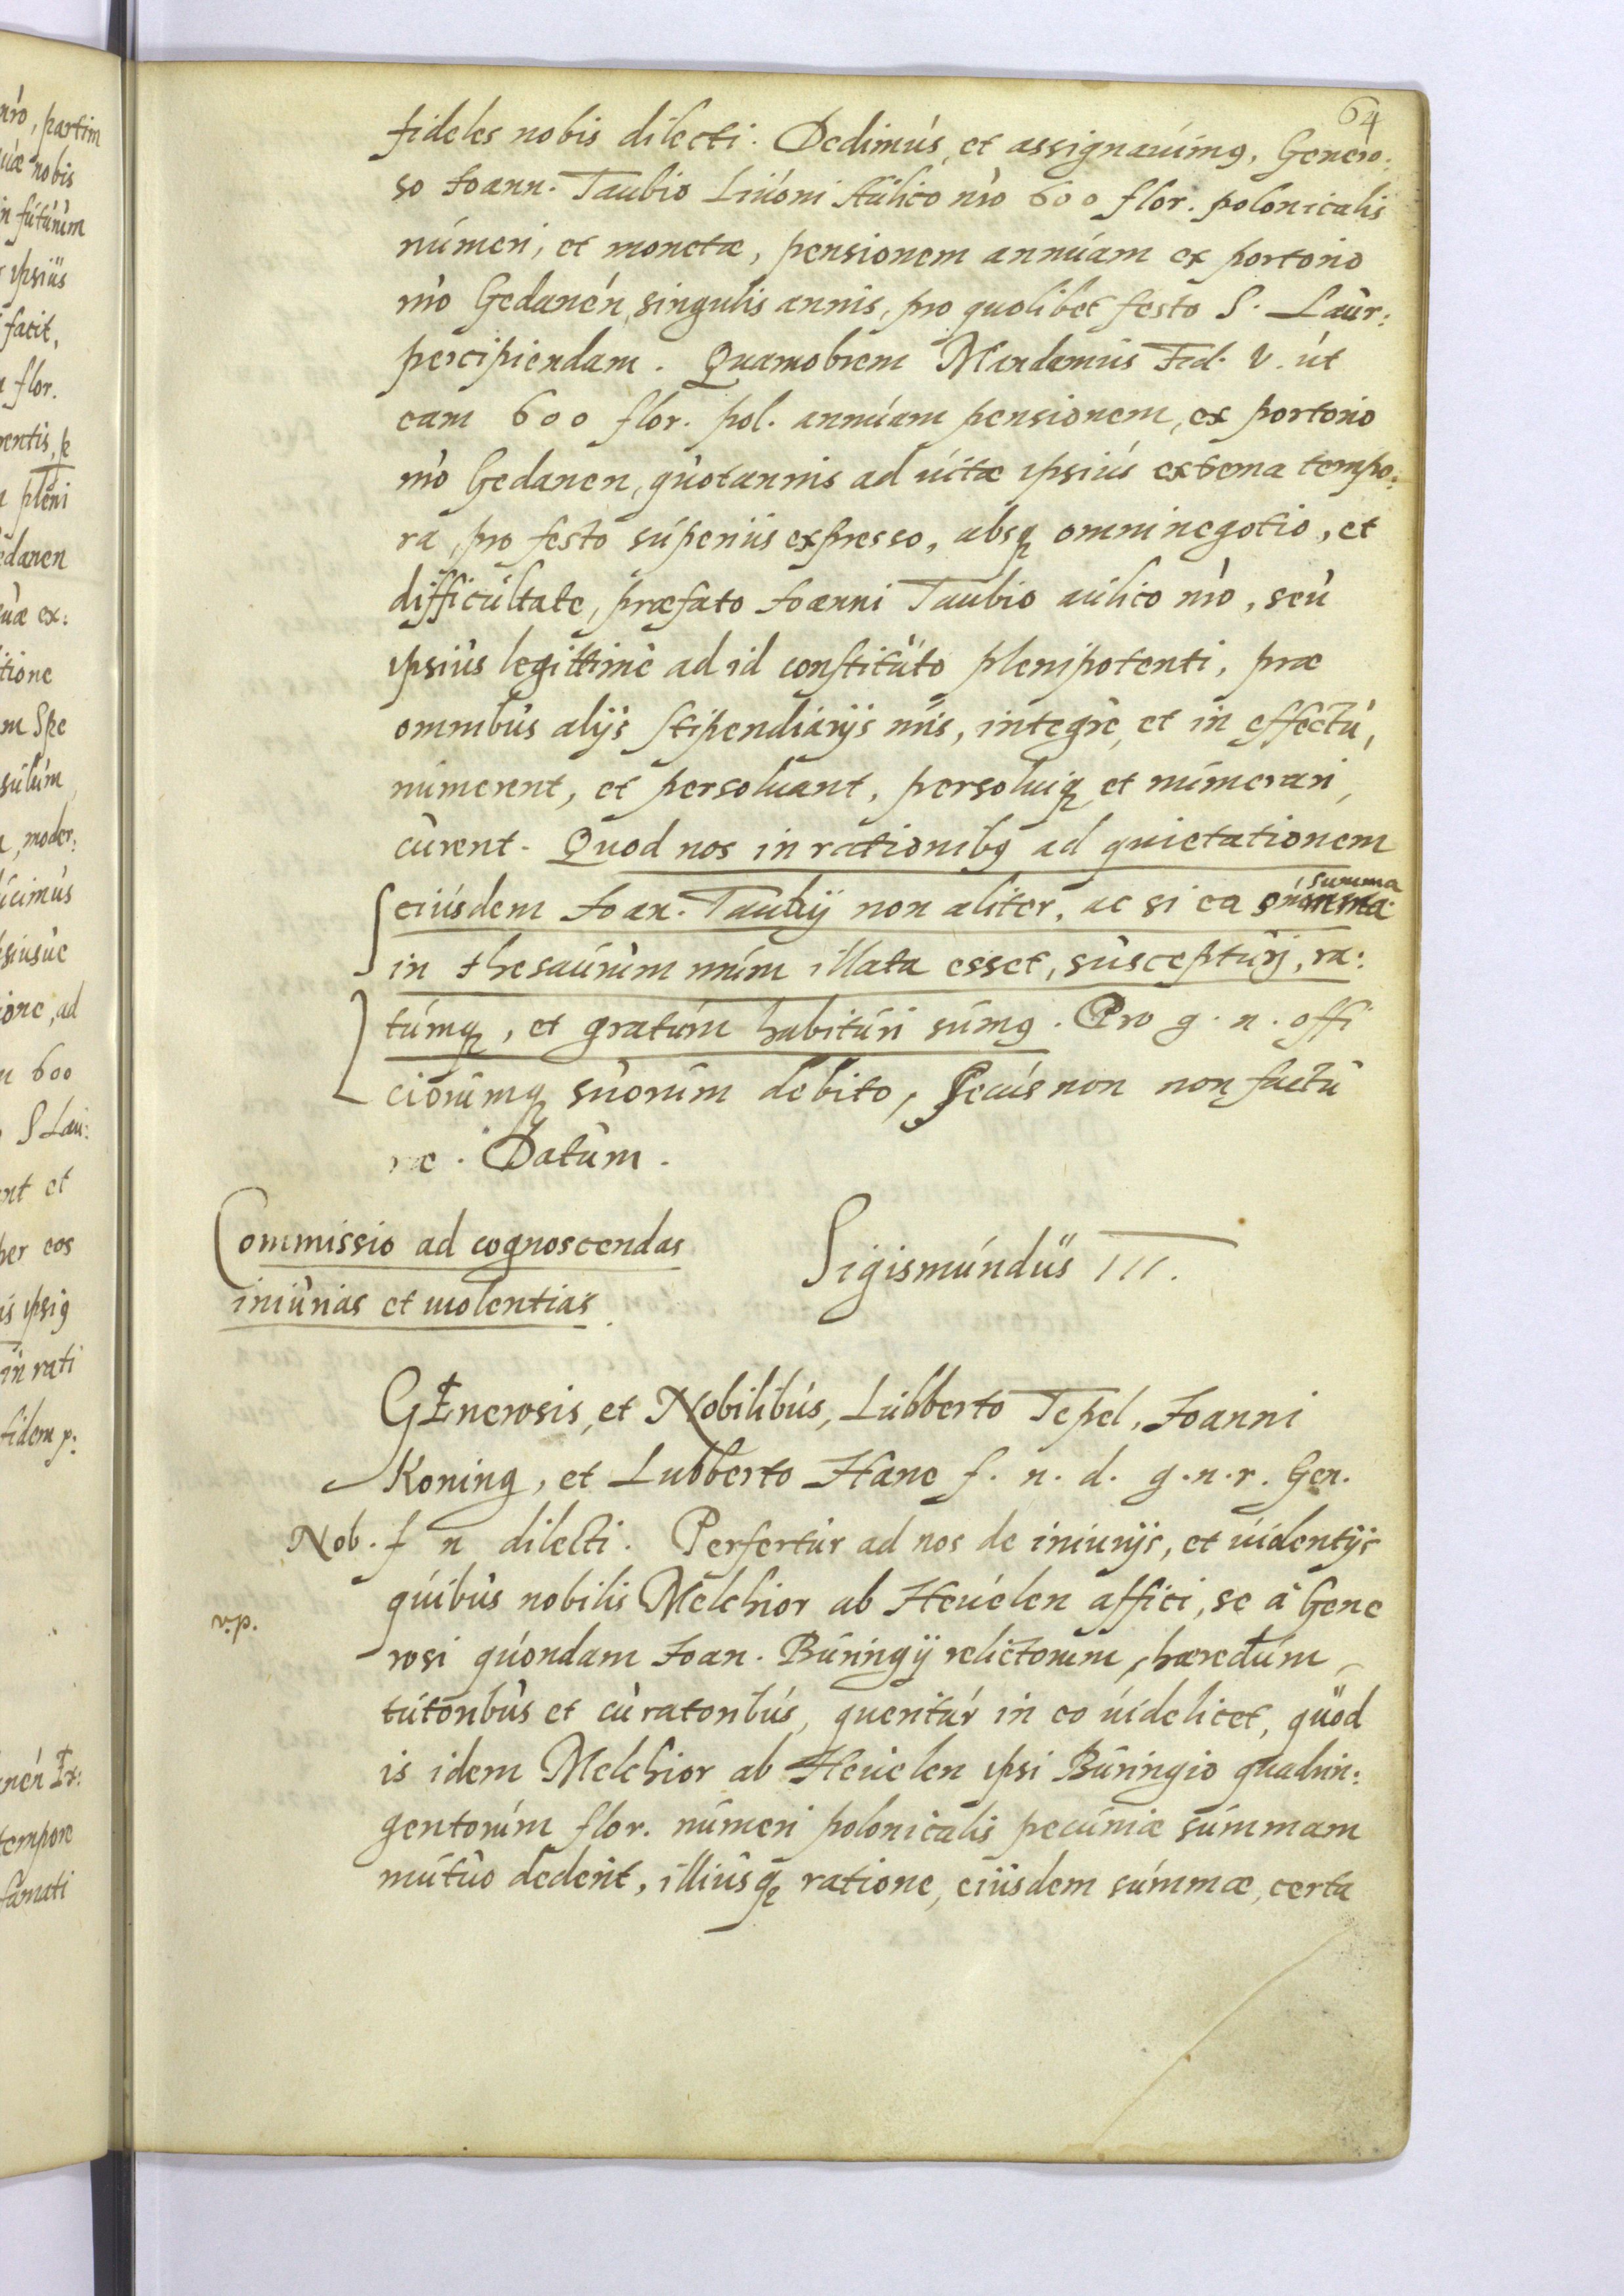 64
fideles nobis dilecti. Dedimus, et assignauimꝰ, Genero:
so Joann. Taubio Liuoni Aulico nr̃o 600 flor. polonicalis
numeri, et monetæ, pensionem annuam ex portorio
nr̃o Gedanen, singulis annis, pro quolibet festo S. Laur:
percipiendam. Quamobrem Mandamus Fid. V. ut
eam 600 flor. pol. annuam pensionem, ex portorio
nr̃o Gedanen, quotannis ad uitæ ipsius extrema tempo:
ra, pro festo superius expresso, absq omni negotio, et
difficultate, præfato Joanni Taubio aulico nr̃o, seu
ipsius legittimè ad id constituto plenipotenti, præ
omnibus alijs stipendiarijs nr̃is, integrè, et in effectu,
numerent, et persoluant, persoluiq et numerari,
curent. Quod nos in rationibꝰ ad quietationem
eiusdem Joan. Taubij non aliter, ac si ea summa
in thesaurum nr̃um illata esset, suscepturi, ra:
tumq, et gratum habituri sumꝰ. Pro g. n. offi
ciorumq suorum debito, secus non non factu
ræ. Datum.
Commissio ad cognoscendas
iniurias et uiolentias.
Sigismundus III.
GEnerosis, et Nobilibus, Lubberto Tepel, Joanni
Koning, et Lubberto Hane f. n. d. g. n. r. Gen.
Nob. f n dilecti. Perfertur ad nos de iniurijs, et uidentijs
quibus nobilis Melchior ab Heuelen affici, se à Gene
v.p.
rosi quondam Joan. Buringij relictorum, hæredum,
tutoribus et curatoribus, queritur in eo uidelicet, quod
is idem Melchior ab Heuelen ipsi Buringio quadrin:
gentorum flor. numeri polonicalis pecuniæ summam
mutuo dederit, illiusq ratione, eiusdem summæ, certa